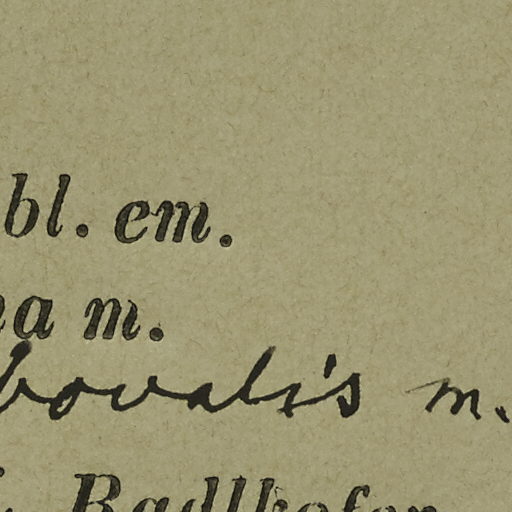 bl. em.
na m.
bovalis m.
. Radlkofer